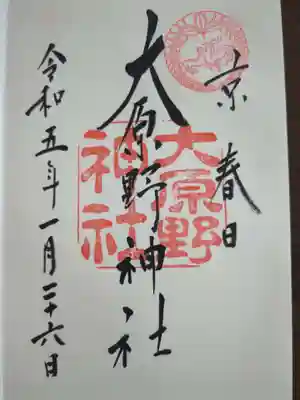 京春日
大原野神社
令和五年一月二十六日
大原野
神社